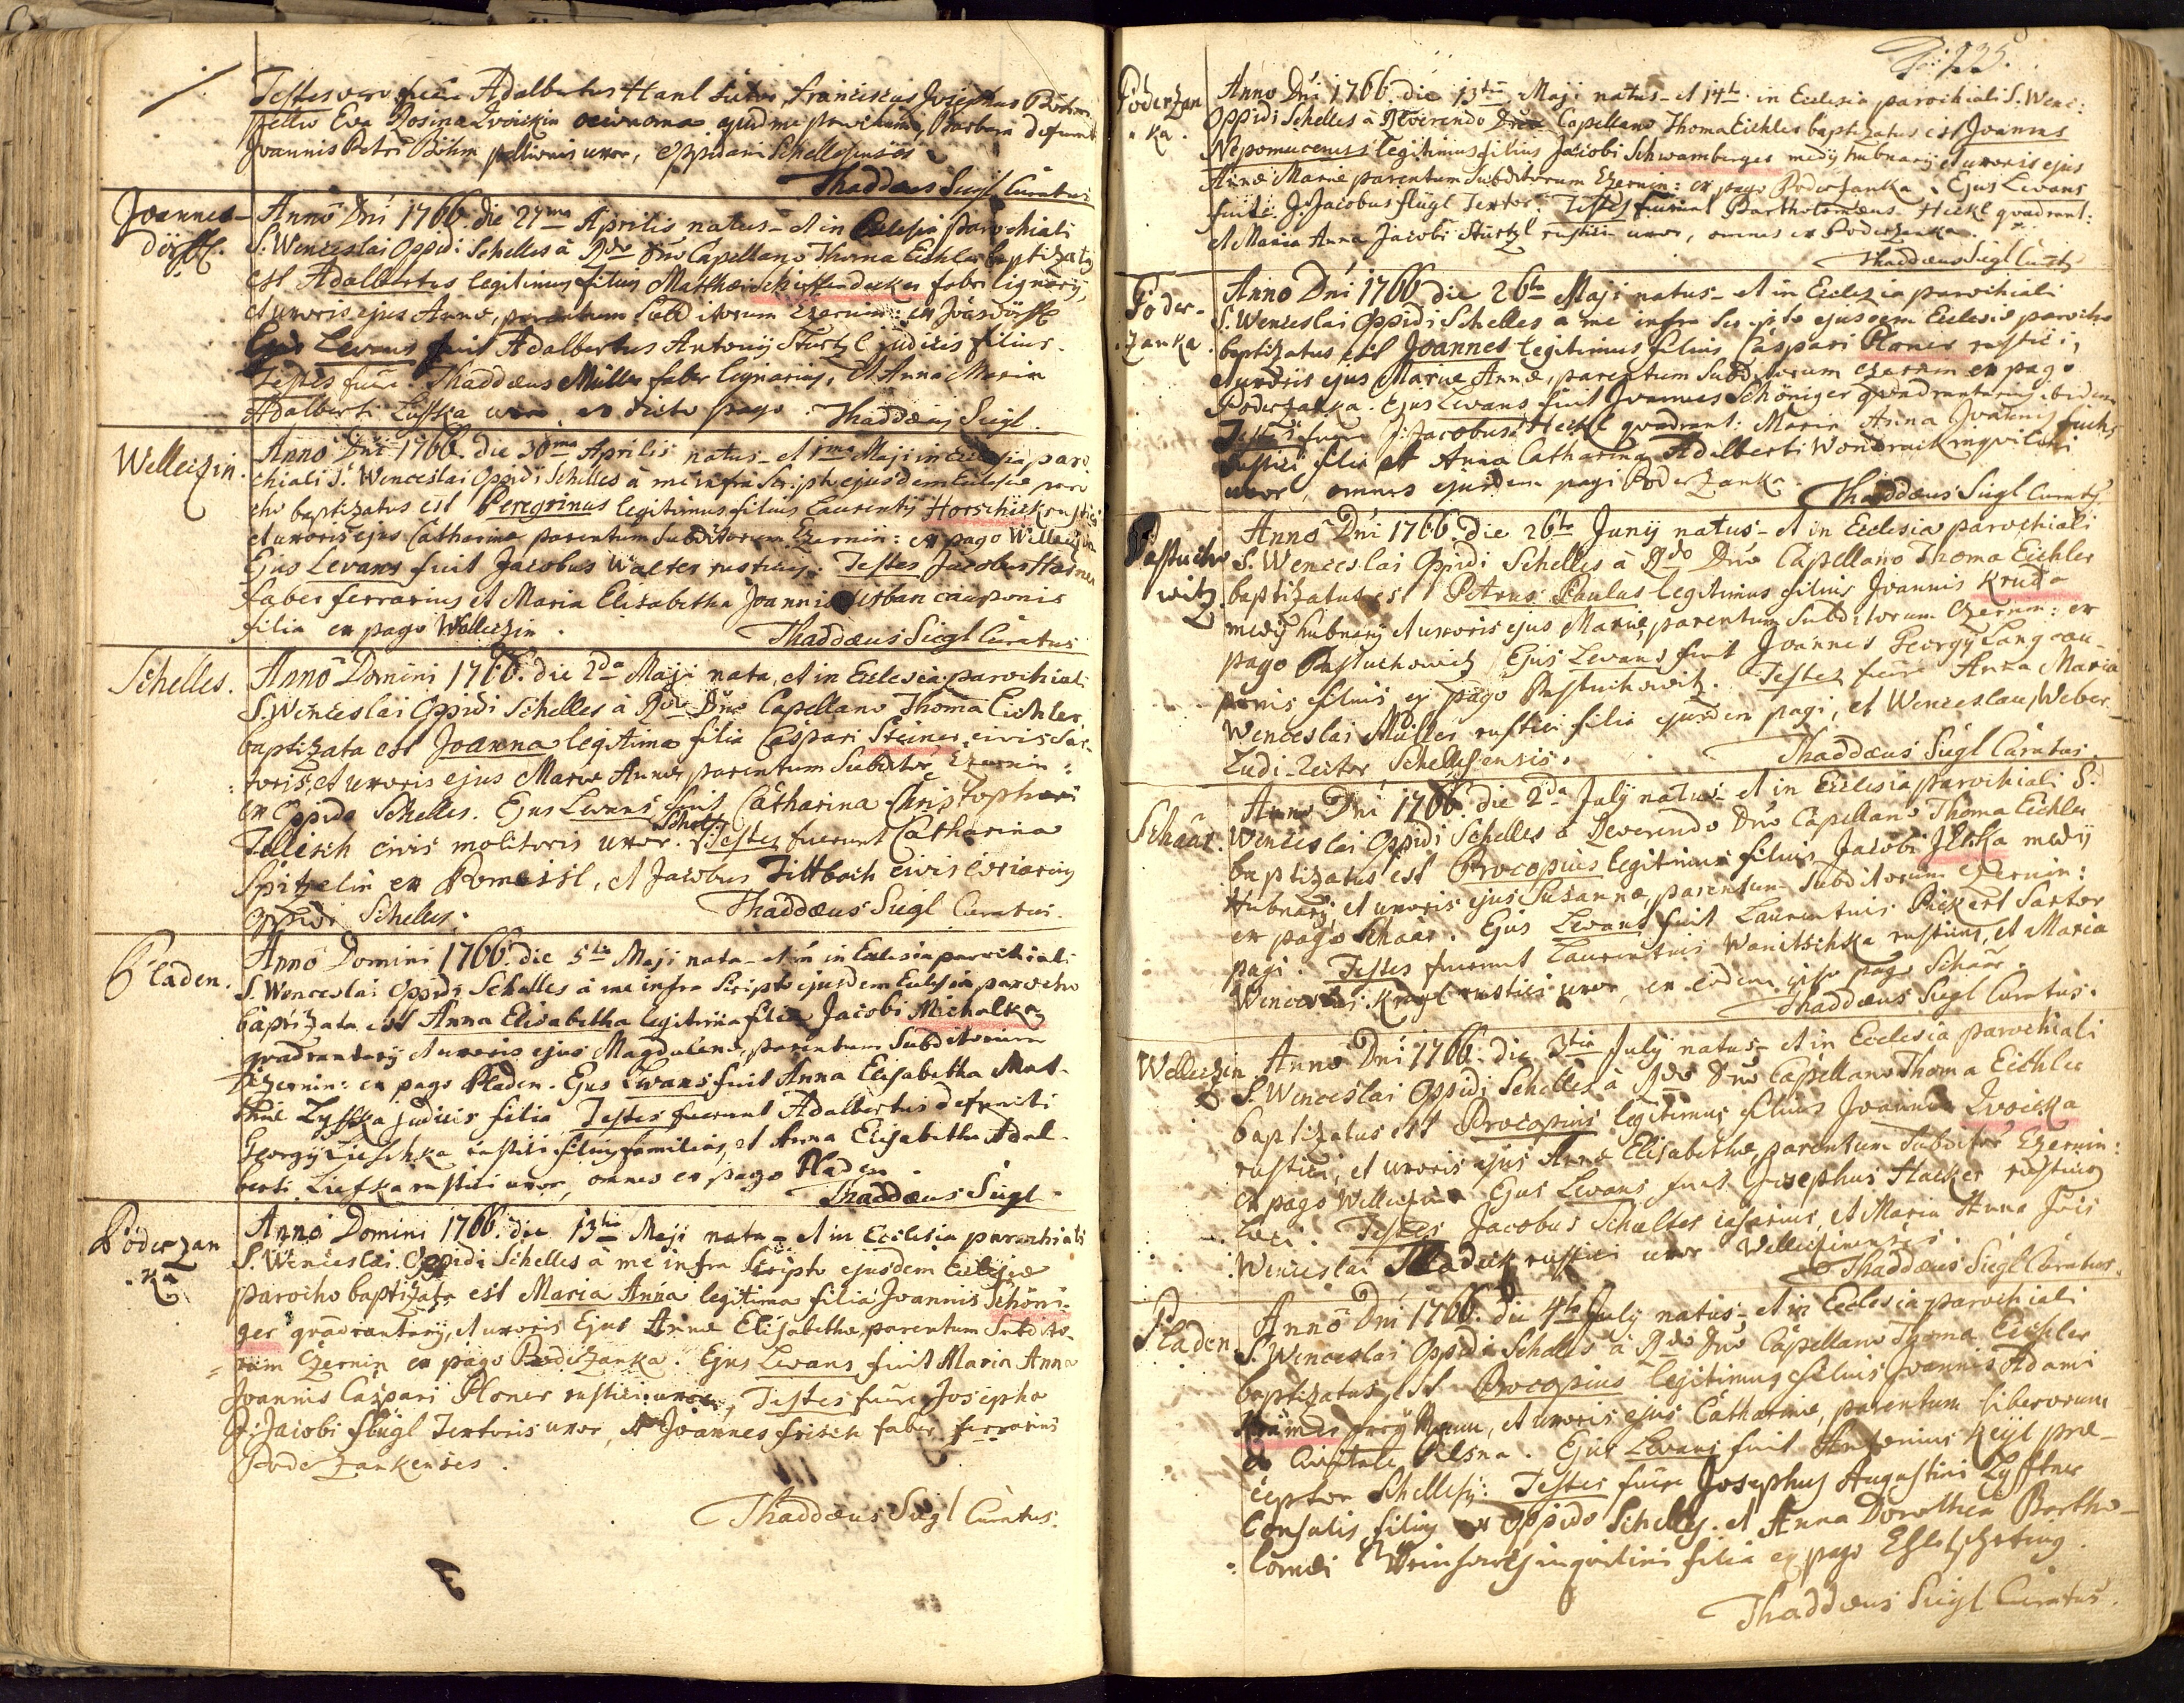 Testes vero fuere Adalbertus Hanl Sutor, Franciscus Josephus Böhm
pellio Eva Rosina Zwickin Barbara defuncti
Joannis Petri Böhm pellionis uxor, oppidani Schellesenses
Thaddæus Siegl Curatus
Joannes-
dörffl.
Anno Dni 1766. die 27ma Aprilis natus - et in Ecclesia Parochiali
S. Wenceslai Oppidi Schelles à Rdo Dno Capellano Thoma Eichler baptizatus
est Adalbertus legitimus filius Matthæi Schifferdecker fabri lignarij,
et uxoris ejus Annæ, parentum Subditorum Czernin: ex Joansdörffl
Ejus Levans fuit Adalbertus Antonij Sturtzl judicis filius.
Testes fuere Thaddæus Müller faber lignarius, et Anna Maria
Adalberti Lischka uxor ex dicto pago. Thaddæus Siegl.
Welleczin.
Anno Dni 1766. die 30ma Aprilis natus - et 1ma Maji in Ecclesia paro-
chiali S. Wenceslai Oppidi Schelles à me infra Scripto ejusdem Ecclesiæ paro
cho baptizatus est Peregrinus legitimus filius Laurentij Horschick rustici
et uxoris ejus Catharinæ parentum Subditorum Czernin: ex pago Welleczin
Ejus Levans fuit Jacobus Walter rusticus. Testes Jacobus
faber ferrarius et Maria Elisabetha Joannis Urban cauponis
filia ex pago Welleczin.
Thaddæus Siegl Curatus
Schelles.
Anno Domini 1766. die 2da Maji nata, et in Ecclesia parochiali
S. Wenceslai Oppidi Schelles à Rdo Dno Capellano Thoma Eichler
baptizata est Joanna legitima filia Caspari Steiner civis Sar-
toris, et uxoris ejus Mariæ Annæ parentum Subditor Czernin:
ex Oppido Schelles. Ejus Levans fuit Catharina Christophori
Tellisch civis molitoris uxor. Testes fuerunt Catharina
Spitzelin ex Pomeisl, et Jacobus Tittbach civis coriarius
Oppidi Schelles.
Thaddæus Siegl Curatus.
Pladen.
Anno Domini 1766. die 5ta Maji nata - et in Ecclesia parochiali
S. Wenceslai Oppidi Schelles à me infra Scripto ejusdem Ecclesiæ parocho
baptizata est Anna Elisabetha legitima filia Jacobi Michalka
quadrantarij et uxoris ejus Magdalenæ, parentum Subditorum
Czernin: ex pago Pladen. Ejus Levans fuit Anna Elisabetha Mat-
thiæ Zyschka judicis filia Testes fuerunt Adalbertus defuncti
Georgij Lieschka rustici filius familias, et Anna Elisabetha Adal-
berti Liefka rustici uxor, omnes ex pago Pladen.
Thaddæus Siegl.
Poderzan
ka
Anno Domini 1766. die 13tia Maji nata - et in Ecclesia parochiali
S. Wenceslai Oppidi Schelles à me infra Scripto ejusdem Ecclesiæ
parocho baptizata est Maria Anna legitima filia Joannis Schöni-
ger quadrantarij, et uxoris Ejus Annæ Elisabethæ, parentum Subdito-
rum Czernin ex pago Poderzanka. Ejus Levans fuit Maria Anna
Joannis Caspari Ploner rustici uxor, Testes fuere Josepha
J: Jacobi flügl Textoris uxor, et Joannes frisch faber ferrarius
Poderzankenses.
Thaddæus Siegl Curatus.
Poderzan
ka.
Anno Dni 1766. die 13tia Maji natus - et 14ta in Ecclesia parochiali S. Wenc:
Oppidi Schelles à Reverendo Dno Capellano Thoma Eichler baptizatus est Joannes
Nepomucenus legitimus filius Jacobi Schwamberger medij hubnarij et uxoris ejus
Annæ Mariæ parentum Subditorum Czernin: ex pago Poderzanka. Ejus Levans
fuit J: Jacobus flügl Textor. Testes fuerunt Bartholomæus Heckl quadrant:
et Maria Anna Jacobi Sturtzl rustici uxor, omnes ex Poderzanka.
Thaddæus Siegl Curatus
Poder-
zanka.
Anno Dni 1766 die 26ta Maji natus - et in Ecclesia parochiali
S. Wenceslai Oppidi Schelles a me infra Scripto ejusdem Ecclesiæ parocho
baptizatus est Joannes legitimus filius Caspari Ploner rustici,
et uxoris ejus Mariæ Annæ, parentum Subditorum Czernin ex pago
Poderzanka. Ejus Levans fuit Joannes Schöniger quadrantarius ibidem
Testes fuere J: Jacobus Heckl quadrant: Maria Anna Joannis fuchs
rustici filia et Anna Catharina Adalberti Wondrack inquilini
uxor, omnes ejusdem pagi Poderzanka.
Thaddæus Siegl Curatus
Pastucho
witz.
Anno Dni 1766. die 26ta Junij natus - et in Ecclesia parochiali
S. Wenceslai Oppidi Schelles à Rdo Dno Capellano Thoma Eichler
baptizatus est Petrus Paulus legitimus filius Joannis Kruta
medij hubnarij et uxoris ejus Mariæ, parentum Subditorum Czernin: ex
pago Pastuchowitz Ejus Levans fuit Joannes Georgij Lang cau-
ponis filius ex pago Pastuchowitz. Testes fuere Anna Maria
Wenceslai Müller rustici filia ejusdem pagi, et Wenceslaus Weber
Ludi-Rector Schellesensis.
Thaddæus Siegl Curatus.
Schaar.
Anno Dni 1766. die 2da July natus - et in Ecclesia parochiali S.
Wenceslai Oppidi Schelles à Reverendo Dno Capellano Thoma Eichler
baptizatus est Procopius legitimus filius Jacobi Jliska medij
Hubnarij, et uxoris ejus Susannæ, parentum Subditorum Czernin:
ex pago Schaar. Ejus Levans fuit Laurentius Pickert Sartor
pagi. Testes fuerunt Laurentius Wanitschka rusticus, et Maria
Wenceslai rustici uxor, ex eodem ipso pago Schaar.
Thaddæus Siegl Curatus.
Welleczin
Anno Dni 1766. die 3tia July natus - et in Ecclesia parochiali
S. Wenceslai Oppidi Schelles à Rdo Dno Capellano Thoma Eichler
baptizatus est Procopius legitimus filius Joannis Zwicka
rustici, et uxoris ejus Annæ Elisabethæ, parentum Subditor Czernin:
ex pago Welleczin Ejus Levans fuit Josephus Hacker rusticus
Loci. Testes Jacobus Schaltes casarius, et Maria Anna
Wenceslai Hladick rustici uxor Welleczinensis.
Thaddæus Siegl Curatus.
Pladen.
Anno Dni 1766. die 4ta July natus, et in Ecclesia parochiali
S. Wenceslai Oppidi Schelles à Rdo Dno Capellano Thoma Eichler
baptizatus est Procopius legitimus filius Joannis Adami
Krämer frey Mann, et uxoris ejus Catharinæ, parentum liberorum
ex Civitate Plesna. Ejus Levans fuit Antonius Keyl præ-
ceptor Schellesij: Testes fuere Josephus Augustini Zyfftner
Consulis filius ex Oppido Schelles. et Anna Dorothea Bartho-
lomæi inquilini filia ex pago
Thaddæus Siegl Curatus.